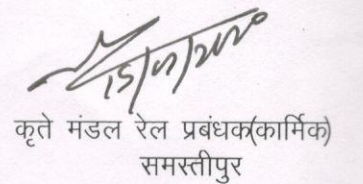 15/07/2020
कृते मंडल रेल प्रबंधक(कार्मिक)
समस्तीपुर